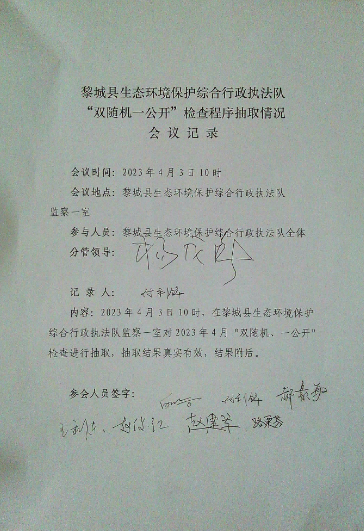 黎城县生态环境保护综合行政执法队
“双随机一公开”检查程序抽取情况
会议记录
会议时间：2023年4月3日10时
会议地点：黎城县生态环境保护综合行政执法队
监察一室
参与人员：黎城县生态环境保护综合行政执法队全体
分管领导：
记录人：
内容：2023年4月3日10时，在黎城县生态环境保护
综合行政执法队监察一室对2023年4月“双随机、一公开”
检查进行抽取，抽取结果真实有效，结果附后。
参会人员签字：